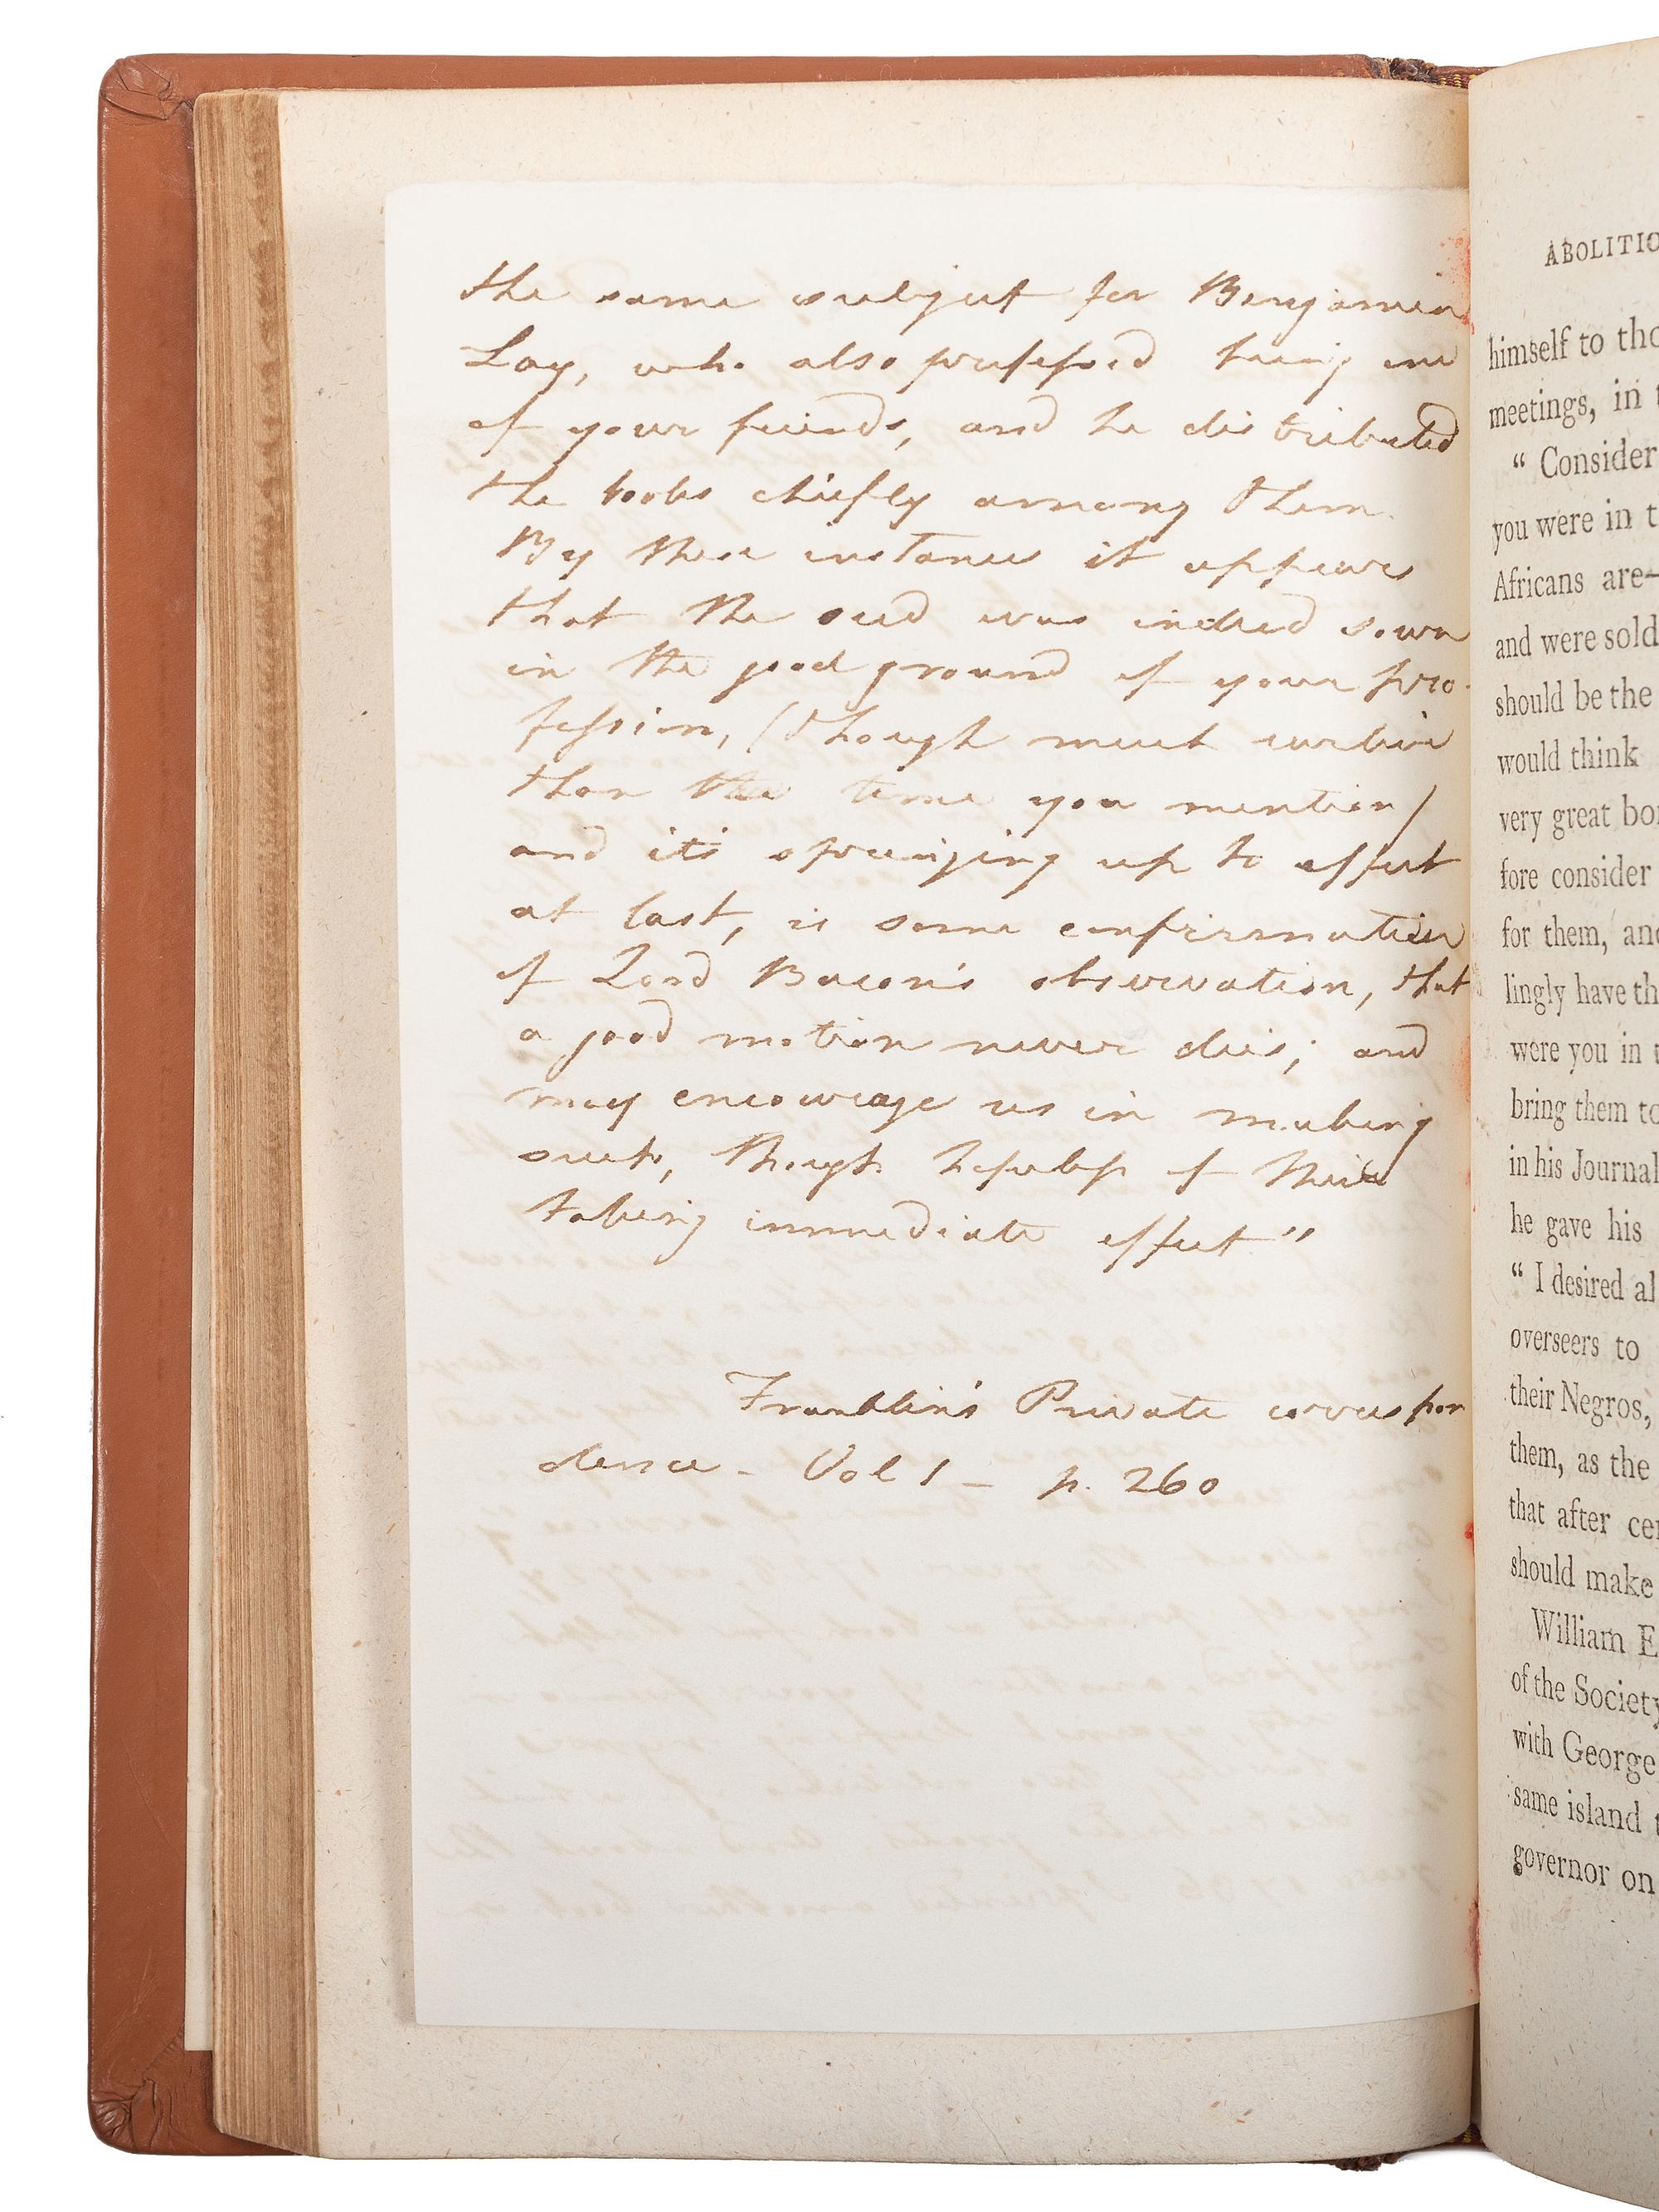 the same subject for Benjamin
Lay, who also professed being one
of your friends, and he distributed
the books chiefly among them.
By these instances it appears
that the seed was indeed sown
in the good ground of your pro-
fession, (though much earlier
than the time you mention)
and its springing up to effect
at last, is some confirmation
of Lord Bacon's observation, that
a good motion never dies; and
may encourage us in making
such, though hopeless of their
taking immediate effect"
Franklin's Private correspon
dence - Vol 1 - p. 260
ABOLITIO
himself to tho
meetings, in t
“ Consider
you were in t
Africans are—
and were sold
should be the
would think
very great bo
fore consider
for them, and
lingly have th
were you in t
bring them to
in his Journal
he gave his
“ I desired al
overseers to
their Negros,
them, as the
that after cer
should make
William E
of the Society
with George
same island t
governor on